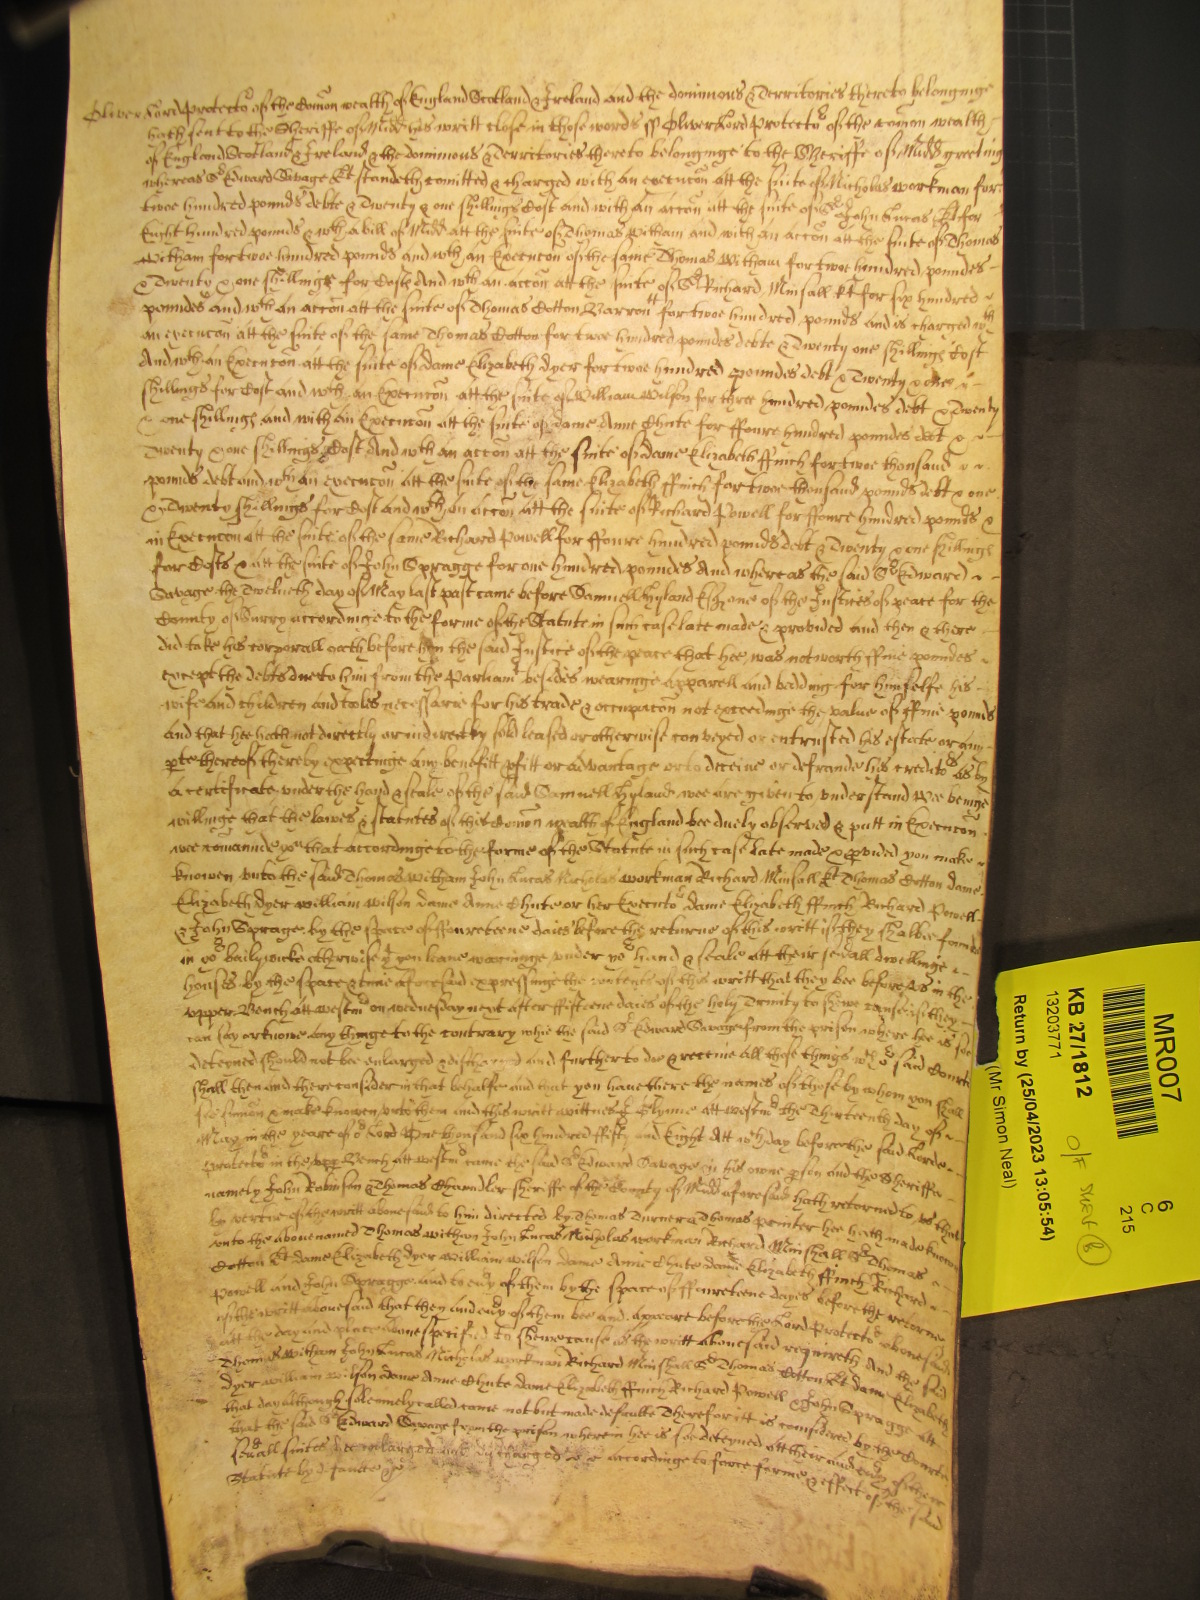 Oliver Lord Protector of the Comon wealth of England Scotland & Ireland and the dominions & Territories thereto belonginge
hath sent to the Sheriffe of Midd his writt close in these words ss Oliver Lord Protector of the Comon wealth
of England Scotland & Ireland & the dominions & Territories thereto belonginge to the Sheriffe of Midd greeting
whereas Sr Edward Savage Kt standeth comitted & charged with an execucon att the suite of Nicholas workman for
twoe hundred pounds debte & Twenty & one shillings Cost and with an accon att the suite of Sr John Lucas Kt for
Eight hundred pounds & wth a bill of Midd att the suite of Thomas Witham and with an accon att the suite of Thomas
Witham for twoe hundred pounds and wth an Execucon of the same Thomas Witham for twoe hundred pounds
& Twenty & one shillings for Costs And wth an accon att the suite of Sr Richard Minsall Kt for six hundred
pounds and wth an accon att the suite of Thomas Cotton Barrontt for twoe hundred pounds and is charged wth
an execucon att the suite of the same Thomas Cotton for twoe hundred pounds debte & Twenty one shillings Cost
And wth an Execucon att the suite of dame Elizabeth dyer for twoe hundred pounds debt & Twenty & one
shillings for Cost and wth an Execucon att the suite of William Wilson for three hundred pounds debt & Twenty
& one shillings and with an Execucon att the suite of dame Anne Chute for ffoure hundred pounds debt &
Twenty & one shillings Cost And wth an accon att the suite of dame Elizabeth ffinch for twoe thousand
pounds debt and wth an execucon att the suite of the same Elizabeth ffinch for twoe thousand pounds debt & one
& Twenty shillings for Cost and wth an accon att the suite of Richard Powell for ffoure hundred pounds &
in Execucon att the suite of the same Richard Powell for ffoure hundred pounds debt & Twenty & one shillings
for Costs & att the suite of John Spragge for one hundred pounds And whereas the said Sr Edward
Savage the Twelueth day of May last past came before Samuell Hyland Esqr one of the Justices of peace for the
County of Surry accordinge to the forme of the Statute in such case late made & provided and then & there
did take his corporall oath before him the said Justice of the peace that hee was not worth ffiue pounds
except the debts due to him from the Parliamt besides wearinge apparell and bedding for himselfe his
wife and children and tooles necessarie for his trade & occupacon not exceedinge the value of ffiue pounds
and that hee hath not directly or indirectly sold leased or otherwise conveyed or entrusted his estate or any
pte thereof thereby expectinge any benefitt pfitt or advantage or to deceiue or defraude his creditors As by
a certificate under the hand & seale of the said Samuell Hyland wee are given to understand Wee beinge
willinge that the lawes & statutes of this Comon wealth of England bee duely observed & putt in Execucon
wee comaunde you that accordinge to the forme of the Statute in such case late made & pvided you make
knowen unto the said Thomas Witham John Lucas Nicholas workman Richard Minsall Kt Thomas Cotton dame
Elizabeth dyer William Wilson dame Anne Chute or her Executors dame Elizabeth ffinch Richard Powell
& John Spragge by the space of ffoureteene daies before the returne of this writt if they shalbee found
in yor bailywicke otherwise yt you leave warninge under yor hand & seale att their sevall dwellinge
houses by the space & time aforesaid expressinge the contents of this writt that they bee before us in the
upper Bench att Westmr on wednesday next after ffifteene daies of the holy Trinity to shewe cause if they
can say or knowe any thinge to the contrary why the said Sr Edward Savage from the prison where hee is soe
deteyned should not bee enlarged & discharged and further to doe & receiue all those things wch or said Courte
shall then and there consider in that behalfe and that you have there the names of those by whom you shall
soe sumon & make knowen unto them and this writt wittnes J Glynne att Westmr the Thirteenth day of
May in the yeare of or Lord One thousand six hundred ffifty and Eight Att wch day before the said Lorde
Protector in the upp Bench att westmr came the said Sr Edward Savage in his owne pson and the Sheriffe
namely John Robinson & Thomas Chaundler sheriffe of the County of Midd aforesaid hath returned to us that
by vertue of the writt abouesaid to him directed by Thomas Turner & Thomas Peinter hee hath made knowen
unto the abouenamed Thomas witham John Lucas Nicholas workman Richard Minshall Kt Thomas
Cotton Kt dame Elizabeth dyer William Wilson dame Anne Chute dame Elizabeth ffinch Richard
Powell and John Spragge and to evy of them by the space of ffoureteene dayes before the returne
of the writt abouesaid that they and evy of them bee and appeare before the Lord Protector abouesaid
att the day and place aboue specified to shewe cause as the writt abouesaid requireth And the said
Thomas Witham John Lucas Nicholas workman Richard Minshall Kt Thomas Cotton Kt dame Elizabeth
dyer William Wilson dame Anne Chute dame Elizabeth ffinch Richard Powell & John Spragge att
that day although solemnely called came not but made defaulte Therefor itt is considered by the Courte
that the said Sr Edward Savage from the prison wherein hee is soe deteyned att their and evy of there
sevall suites bee enlarged and discharged accordinge to force forme & effect of the said
Statute by defaulte &c
MR007
6
C
215
KB 27/1812
13203771
O/F
Return by (25/04/2023 13:05:54)
(Mr Simon Neal)